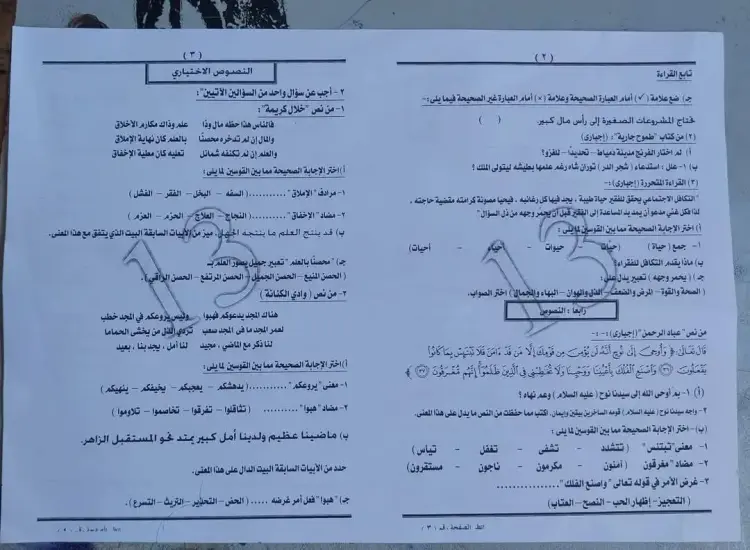 ( ٢ )
تابع القراءة
جـ) ضع علامة (✓) أمام العبارة الصحيحة وعلامة (×) أمام العبارة غير الصحيحة فيما يلى:-
تحتاج المشروعات الصغيرة إلى رأس مال كبير. ( )
(٢) من كتاب "طموح جارية": (إجبارى)
أ) لم اختار الفرنج مدينة دمياط - تحديدًا - للغزو؟
ب) ١- علل: استدعاء (شجر الدر) توران شاه رغم علمها بطيشه ليتولى الملك ؟
(٣) القراءة المتحررة (إجبارى):
"التكافل الاجتماعي يحقق للفقير حياة طيبة، يجد فيها كل رغائبه، فيحيا مصونة كرامته مقضية حاجته،
لذا فكل غني مدعو أن يمد يد المساعدة إلى الفقير قبل أن يحمر وجهه من ذل السؤال"
أ) اختر الإجابة الصحيحة مما بين القوسين لما يلى :
١- جمع (حياة) (حياتا - حيوات - أحياء - أحيات)
ب) ماذا يقدم التكافل للفقراء؟
جـ) (يحمر وجهه) تعبير يدل على:
(الصحة والقوة - المرض والضعف - الذل والهوان - البهاء والجمال) اختر الصواب.
رابعاً : النصوص
من نص "عباد الرحمن" (إجبارى):-
قَالَ تَعَالَى: ﴿ وَأُوحِيَ إِلَى نُوحٍ أَنَّهُ لَن يُؤْمِنَ مِن قَوْمِكَ إِلَّا مَن قَدْ ءَامَنَ فَلَا تَبْتَئِسْ بِمَا كَانُوا
يَفْعَلُونَ (٣٦) وَاصْنَعِ الْفُلْكَ بِأَعْيُنِنَا وَوَحْيِنَا وَلَا تُخَاطِبْنِي فِي الَّذِينَ ظَلَمُوا إِنَّهُم مُّغْرَقُونَ (٣٧) ﴾
(أ) ١- بم أوحى الله إلى سيدنا نوح (عليه السلام) وعم نهاه ؟
٢- واجه سيدنا نوح (عليه السلام) قومه الساخرين بيقين وإيمان. اكتب مما حفظت من النص ما يدل على هذا المعنى.
(ب)- اختر الإجابة الصحيحة مما بين القوسين لما يلى :
١- معنى "تبتئس" (تتشدد - تشفى - تغفل - تيأس)
٢- مضاد "مغرقون" (آمنون - مكرمون - ناجون - مستقرون)
٣- غرض الأمر في قوله تعالى "واصنع الفلك"................
(التعجيز - إظهار الحب - النصح - العتاب)
( ٣ )
النصوص الاختياري
٢- أجب عن سؤال واحد من السؤالين الآتيين":
١- من نص "خلال كريمة":
فالناس هذا حظه مال وذا علم وذاك مكارم الأخلاق
والمال إن لم تدخره محصنًا بالعلم كان نهاية الإملاق
والعلم إن لم تكتنفه شمائل تعليه كان مطية الإخفاق
أ) اختر الإجابة الصحيحة مما بين القوسين لما يلى :
١- مرادف "الإملاق"........... (السفه - البخل - الفقر - الفشل)
٢- مضاد "الإخفاق"........... (النجاح - العلاج - الحزم - العزم)
ب) قد ينتج العلم ما ينتجه الجهل. ميز من الأبيات السابقة البيت الذي يتفق مع هذا المعنى.
جـ) "محصنًا بالعلم" تعبير جميل يصور العلم بـ
(الحصن المنيع - الحصن الجميل - الحصن المرتفع - الحصن الراقي).
٢- من نص (وادي الكنانة)
هناك المجد يدعوكم فهبوا وليس يروعكم في المجد خطب
لعمر المجد ما في المجد صعب تردي الليل من يخشى الحماما
لنا ذكر مع الماضي، مجيد لنا أمل، يجد بنا، بعيد
أ) اختر الإجابة الصحيحة مما بين القوسين لما يلى :
١- معنى "يروعكم".......... (يدهشكم - يعجبكم - يخيفكم - ينهيكم)
٢- مضاد "هبوا" (تثاقلوا - تفرقوا - تخاصموا - تلاوموا)
ب) ماضينا عظيم ولدينا أمل كبير يمتد نحو المستقبل الزاهر.
حدد من الأبيات السابقة البيت الدال على هذا المعنى.
جـ) "هبوا" فعل أمر غرضه ..... (الحض - التحذير - التريث - التسرع).
13
13